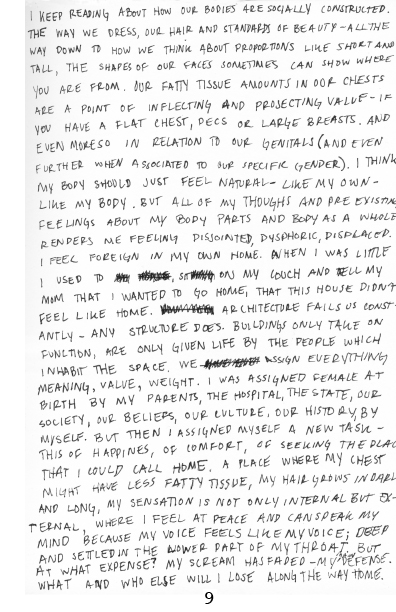 I KEEP READING ABOUT HOW OUR BODIES ARE SOCIALLY CONSTRUCTED.
THE WAY WE DRESS, OUR HAIR AND STANDARDS OF BEAUTY - ALL THE
WAY DOWN TO HOW WE THINK ABOUT PROPORTIONS LIKE SHORT AND
TALL, THE SHAPES OF OUR FACES SOMETIMES CAN SHOW WHERE
YOU ARE FROM. OUR FATTY TISSUE AMOUNTS IN OUR CHESTS
ARE A POINT OF INFLECTING AND PROJECTING VALUE - IF
YOU HAVE A FLAT CHEST, PECS OR LARGE BREASTS. AND
EVEN MORESO IN RELATION TO OUR GENITALS (AND EVEN
FURTHER WHEN ASSOCIATED TO OUR SPECIFIC GENDER). I THINK
MY BODY SHOULD JUST FEEL NATURAL - LIKE MY OWN -
LIKE MY BODY. BUT ALL OF MY THOUGHTS AND PRE EXISTING
FEELINGS ABOUT MY BODY PARTS AND BODY AS A WHOLE
RENDERS ME FEELING DISJOINTED, DYSPHORIC, DISPLACED.
I FEEL FOREIGN IN MY OWN HOME. WHEN I WAS LITTLE
I USED TO ON MY COUCH AND TELL MY
MOM THAT I WANTED TO GO HOME, THAT THIS HOUSE DIDN'T
FEEL LIKE HOME. ARCHITECTURE FAILS US CONST-
ANTLY - ANY STRUCTURE DOES. BUILDINGS ONLY TAKE ON
FUNCTION, ARE ONLY GIVEN LIFE BY THE PEOPLE WHICH
INHABIT THE SPACE. WE ASSIGN EVERYTHING
MEANING, VALUE, WEIGHT. I WAS ASSIGNED FEMALE AT
BIRTH BY MY PARENTS, THE HOSPITAL, THE STATE, OUR
SOCIETY, OUR BELIEFS, OUR CULTURE, OUR HISTORY, BY
MYSELF. BUT THEN I ASSIGNED MYSELF A NEW TASK -
THIS OF HAPPINES, OF COMFORT, OF SEEKING THE PLACE
THAT I COULD CALL HOME. A PLACE WHERE MY CHEST
MIGHT HAVE LESS FATTY TISSUE, MY HAIR GROWS IN DARK
AND LONG, MY SENSATION IS NOT ONLY INTERNAL BUT EX-
TERNAL, WHERE I FEEL AT PEACE AND CAN SPEAK MY
MIND BECAUSE MY VOICE FEELS LIKE MY VOICE; DEEP
AND SETTLED IN THE LOWER PART OF MY THROAT. BUT
AT WHAT EXPENSE? MY SCREAM HAS FADED - MY DEFENSE.
WHAT AND WHO ELSE WILL I LOSE ALONG THE WAY HOME.
9